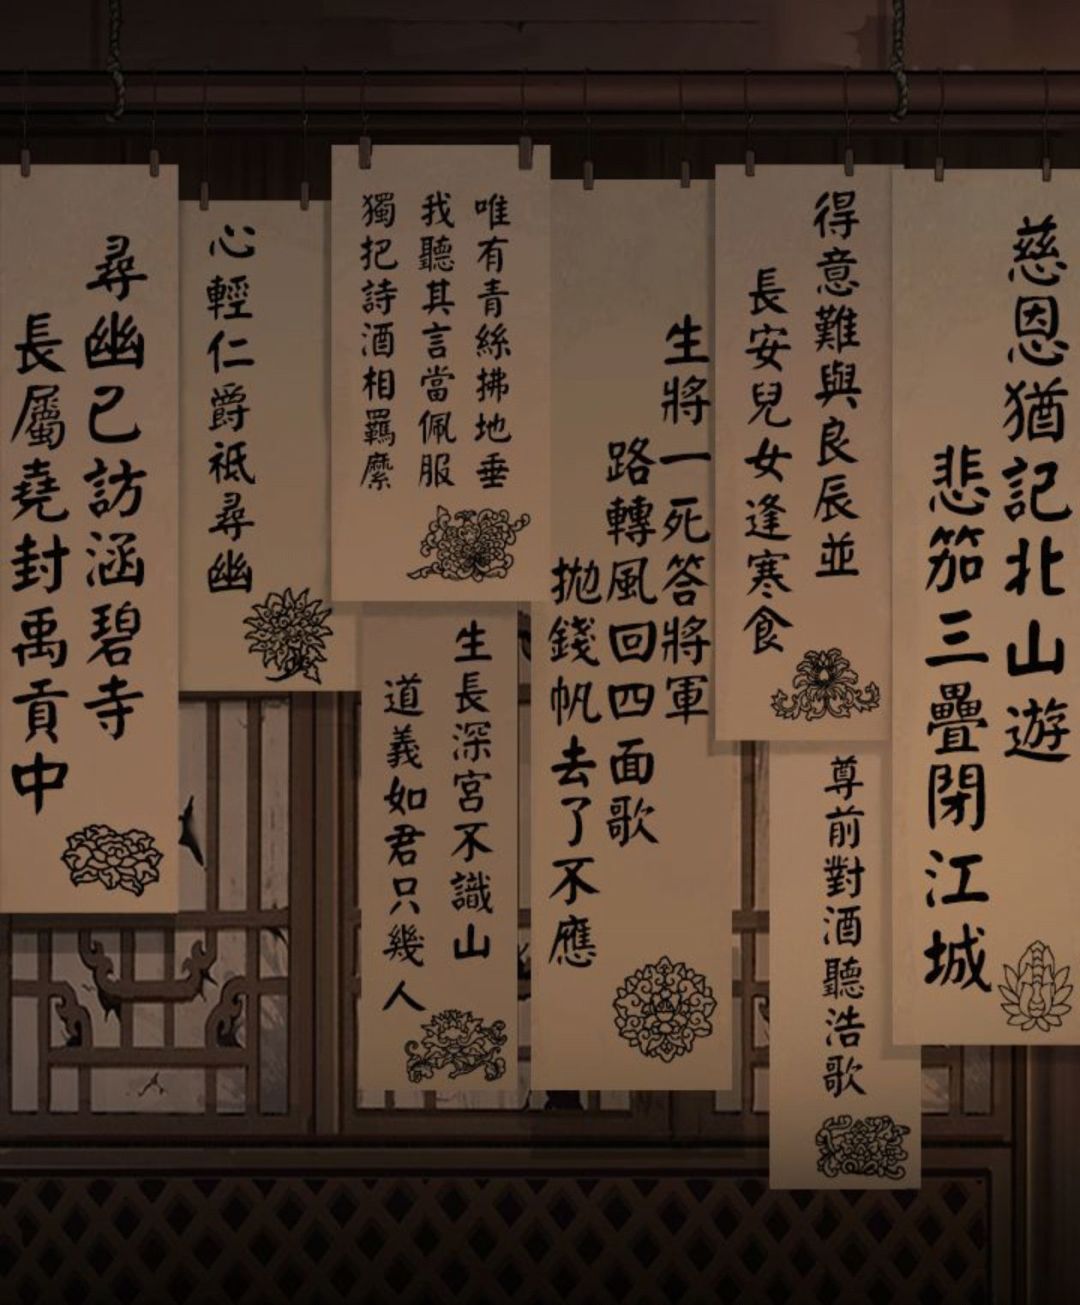 慈恩猶記北山遊
悲笳三疊閉江城
得意難與良辰並
長安兒女逢寒食
尊前對酒聽浩歌
生將一死答將軍
路轉風回四面歌
拋錢帆去了不應
唯有青絲拂地垂
我聽其言當佩服
獨把詩酒相羈縻
生長深宮不識山
道義如君只幾人
心輕仁爵祇尋幽
尋幽已訪涵碧寺
長屬堯封禹貢中